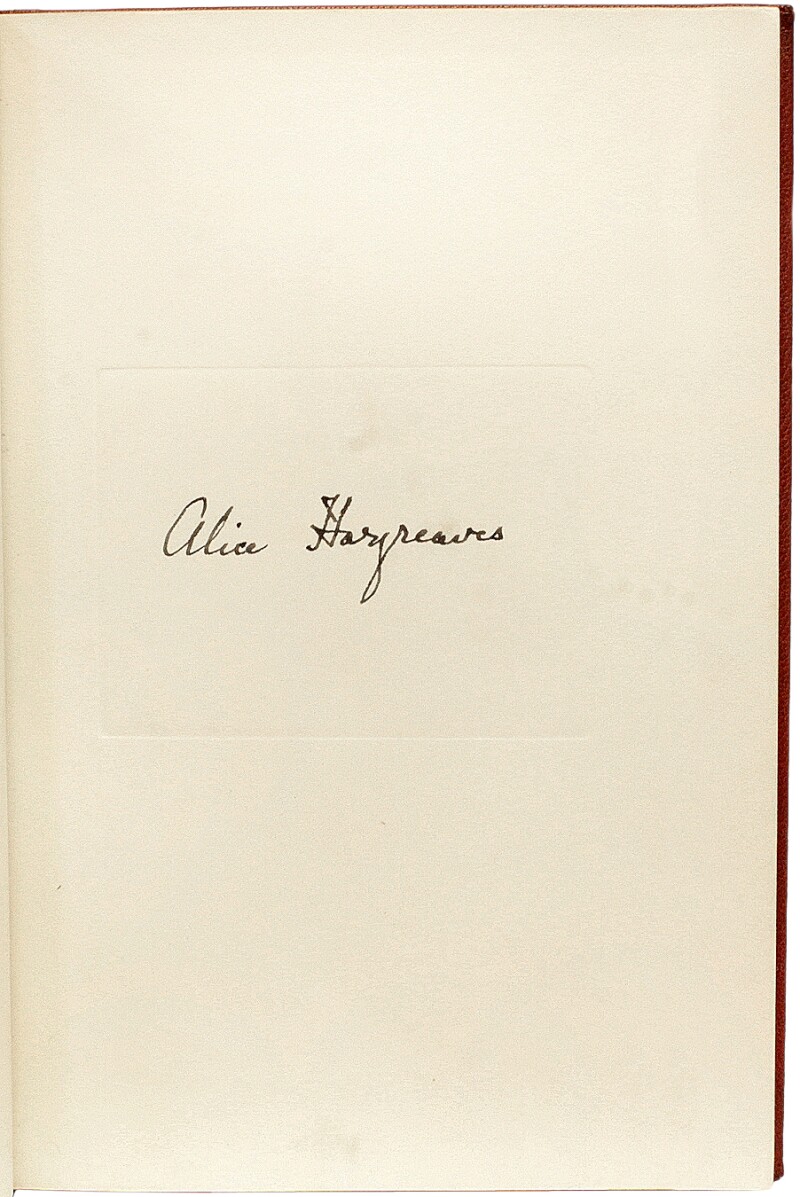 Alice Hargreaves